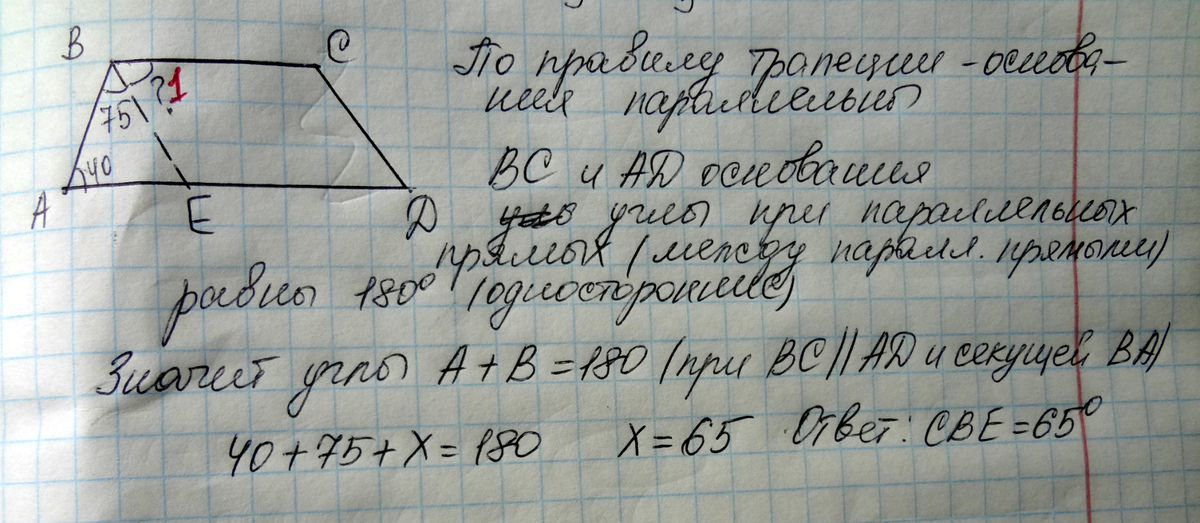 B
C
По правилу трапеции - основа-
ния параллельны
75
?
1
40
A
E
D
BC и AD основания
углы при параллельных
прямых (между паралл. прямыми)
равны 180° (односторонние)
Значит углы A + B = 180 (при BC || AD и секущей BA)
40 + 75 + X = 180 X = 65 Ответ: CBE = 65°